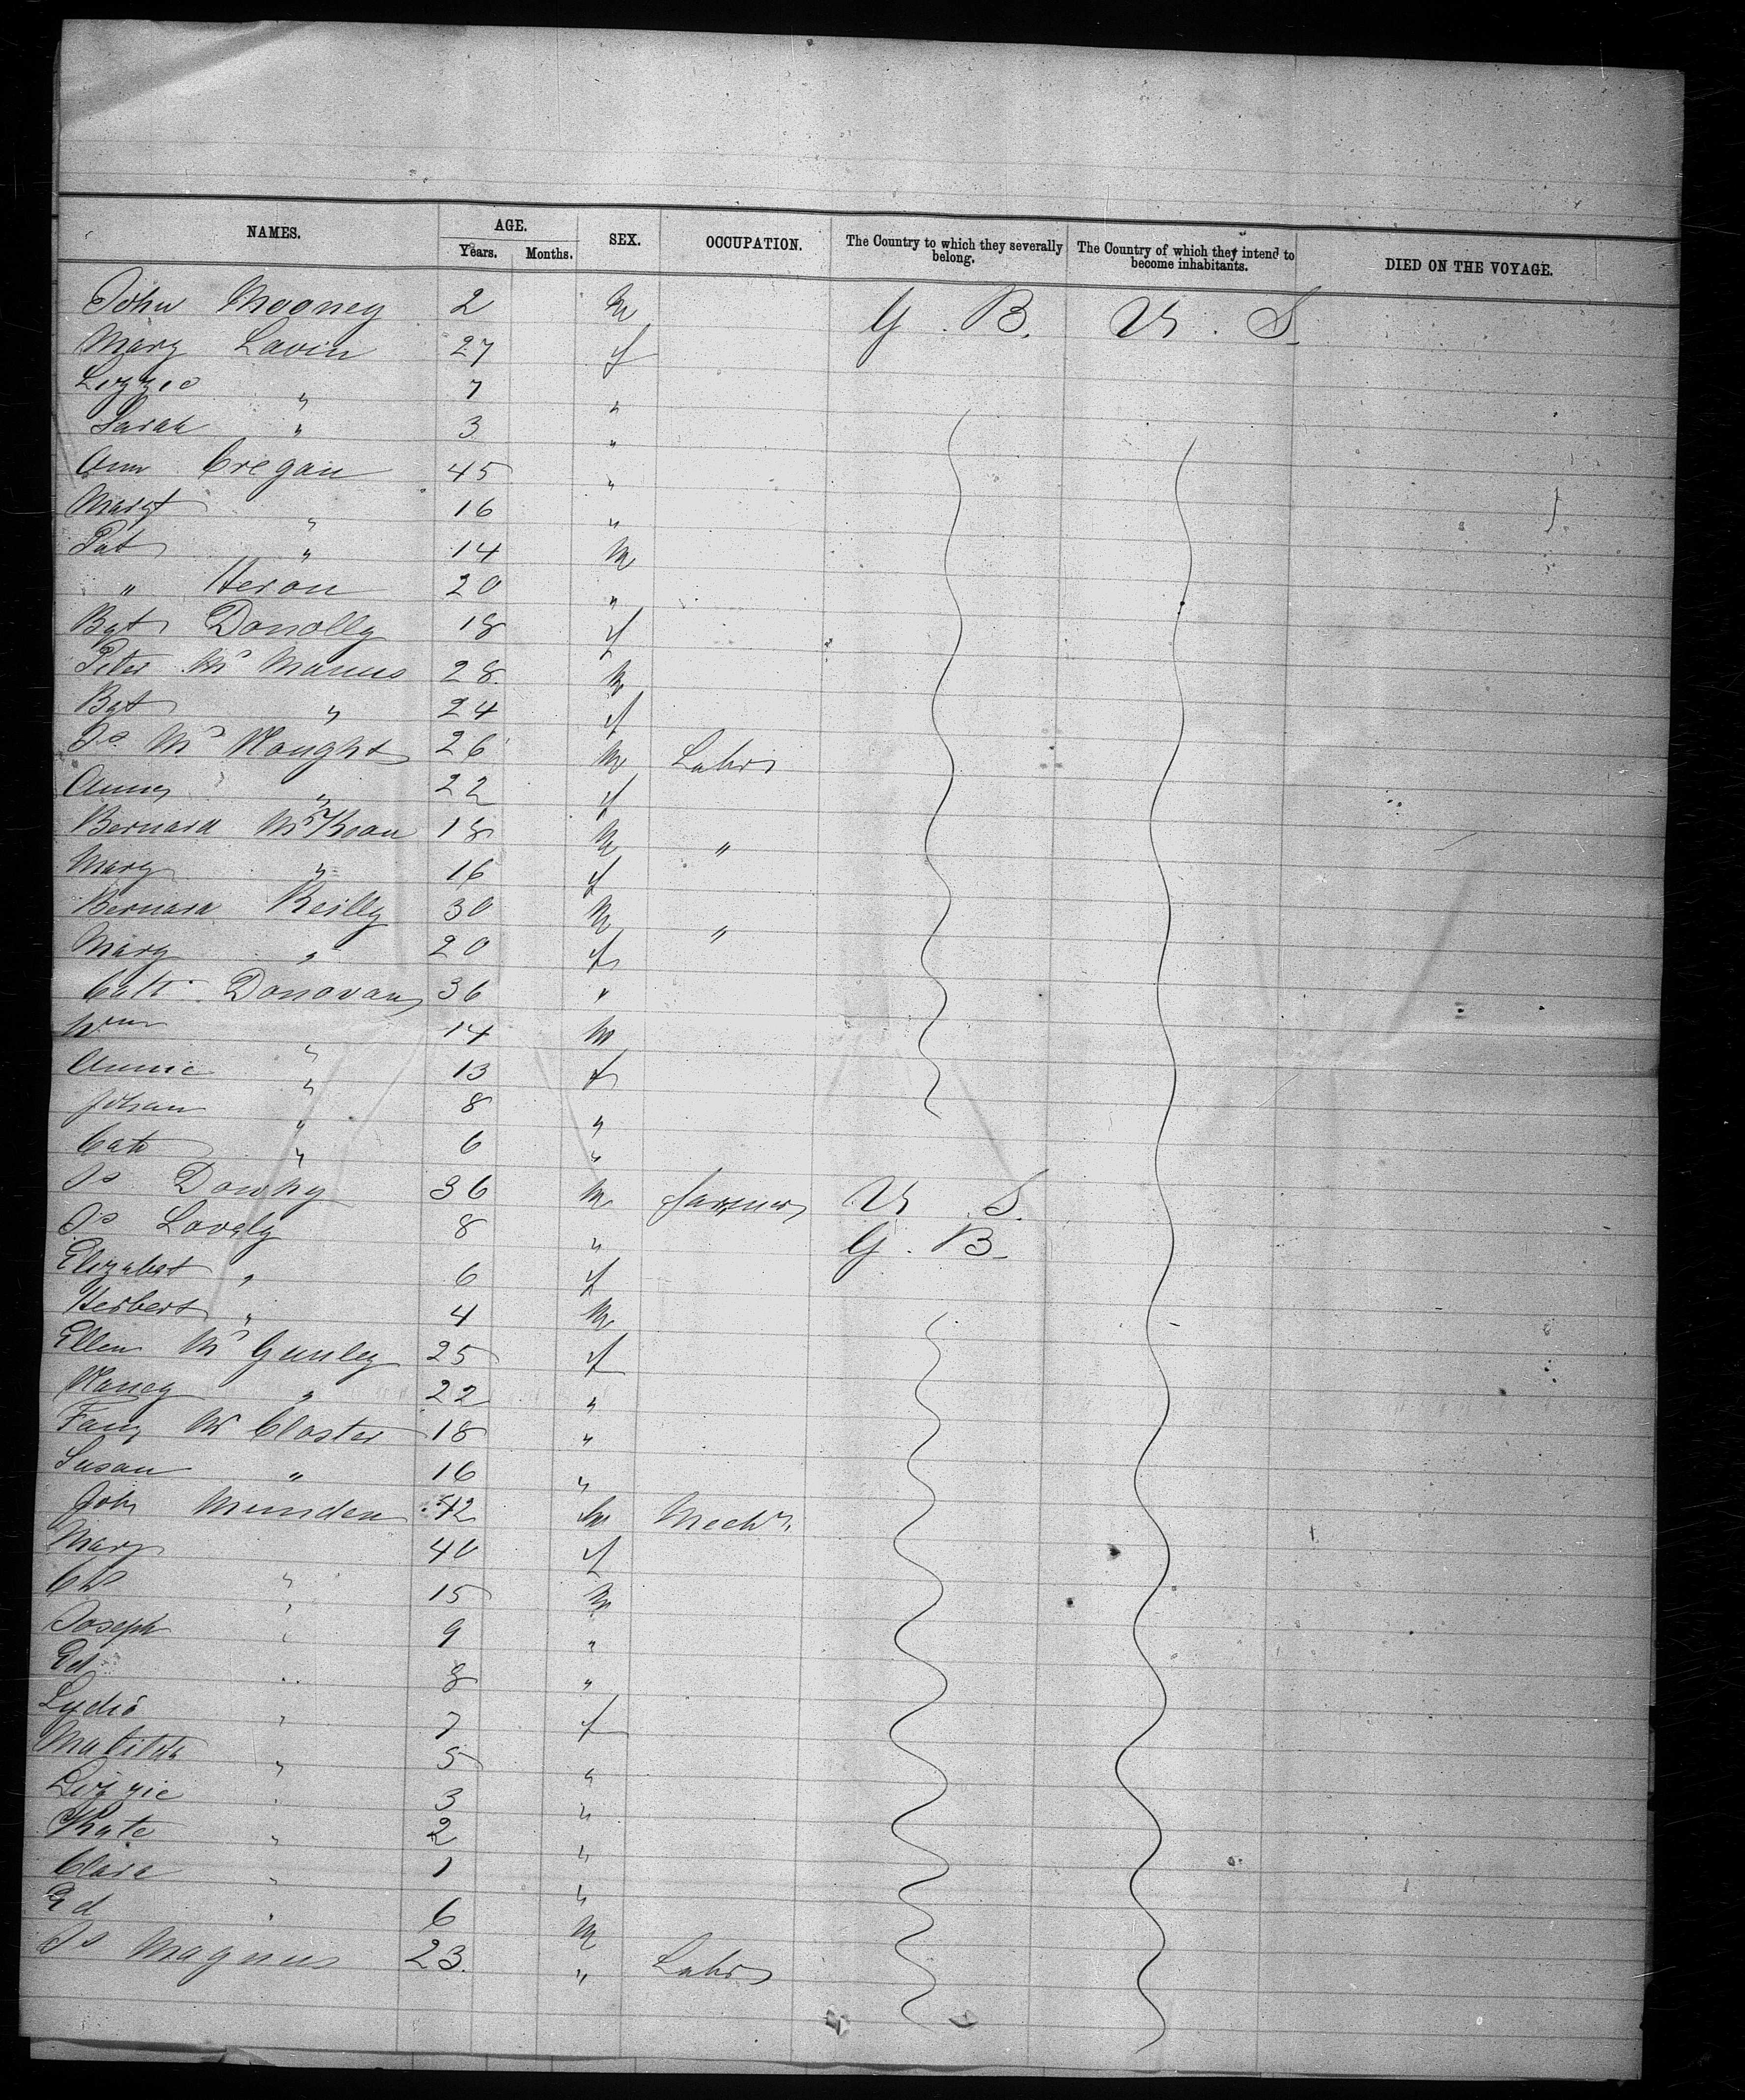 NAMES. AGE. Years. Months. SEX. OCCUPATION. The Country to which they severally belong. The Country of which they intend to become inhabitants. DIED ON THE VOYAGE.
John Mooney 2 M G. B. U. S.
Mary Lavin 27 f
Lizzie " 7 "
Sarah " 3 "
Ann Cregan 45 "
Margt " 16 "
Pat " 14 M
" Heron 20 "
Bgt Donolly 18 f
Peter Mc Manus 28 M
Bgt " 24 f
Js Mc Naught 26 M Labr
Anny " 22 f
Bernard Mc Koan 18 M "
Mary " 16 f
Bernard Reilly 30 M "
Mary " 20 f
Cath Donovan 36 "
Wm " 14 M
Annie " 13 f
Johan " 8 "
Cath " 6 "
Js Downy 36 M farmer U S.
Js Lovely 8 " G. B.
Elizabet " 6 f
Herbert " 4 M
Ellen Mc Gunley 25 f
Nancy " 22 "
Fany Mc Closter 18 "
Susan " 16 "
John Munden 42 M Mechc.
Mary 40 f
Chs " 15 M
Joseph " 9 "
Ed " 8 "
Lydia " 7 f
Matilda " 5 "
Lizzie " 3 "
Kate " 2 "
Clara " 1 "
Ed " 6 M
Js Magnus 23. " Labr